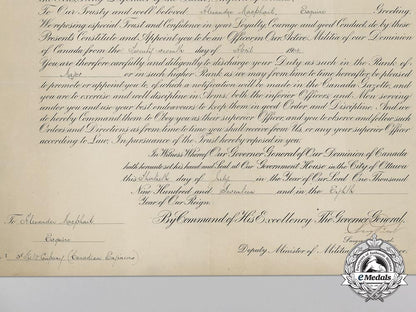 To Our Trusty and well beloved Alexander Macphail Esquire Greeting
We reposing especial Trust and Confidence in your Loyalty Courage and good Conduct, do by these
Presents Constitute and Appoint you to be an Officer in Our Active Militia of our Dominion
of Canada from the Twenty seventh day of April
You are therefore carefully and diligently to discharge your Duty as such in the Rank of
Major or in such higher Rank as we may from time to time hereafter be pleased
to promote or appoint you to, of which a notification will be made in the Canada Gazette, and
you are to exercise and well discipline in Arms both the inferior Officers and Men serving
under you and use your best endeavours to keep them in good Order and Discipline. And we
do hereby Command them to Obey you as their superior Officer, and you to observe and follow such
Orders and Directions as from time to time you shall receive from Us, or any your superior Officer
according to Law, In pursuance of the Trust hereby reposed in you.
In Witness Whereof Our Governor General of Our Dominion of Canada
hath hereunto set his hand and Seal at Our Government House in the City of Ottawa
this day of July in the Year of Our Lord One Thousand
Nine Hundred and Seventeen and in the Eighth
Year of Our Reign.
By Command of His Excellency The Governor General,
To Alexander Macphail
Esquire
(Canadian Engineers)
Deputy Minister of Militia
MEDALS